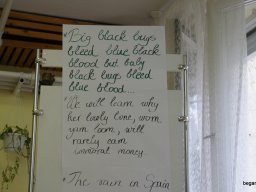 Big black bugs
bleed blue black
blood but baby
black bugs bleed
blue blood...
We will learn why
her lowly lone, worn
yarn loom, will
rarely earn
immoral money.
The rain in Spain
began